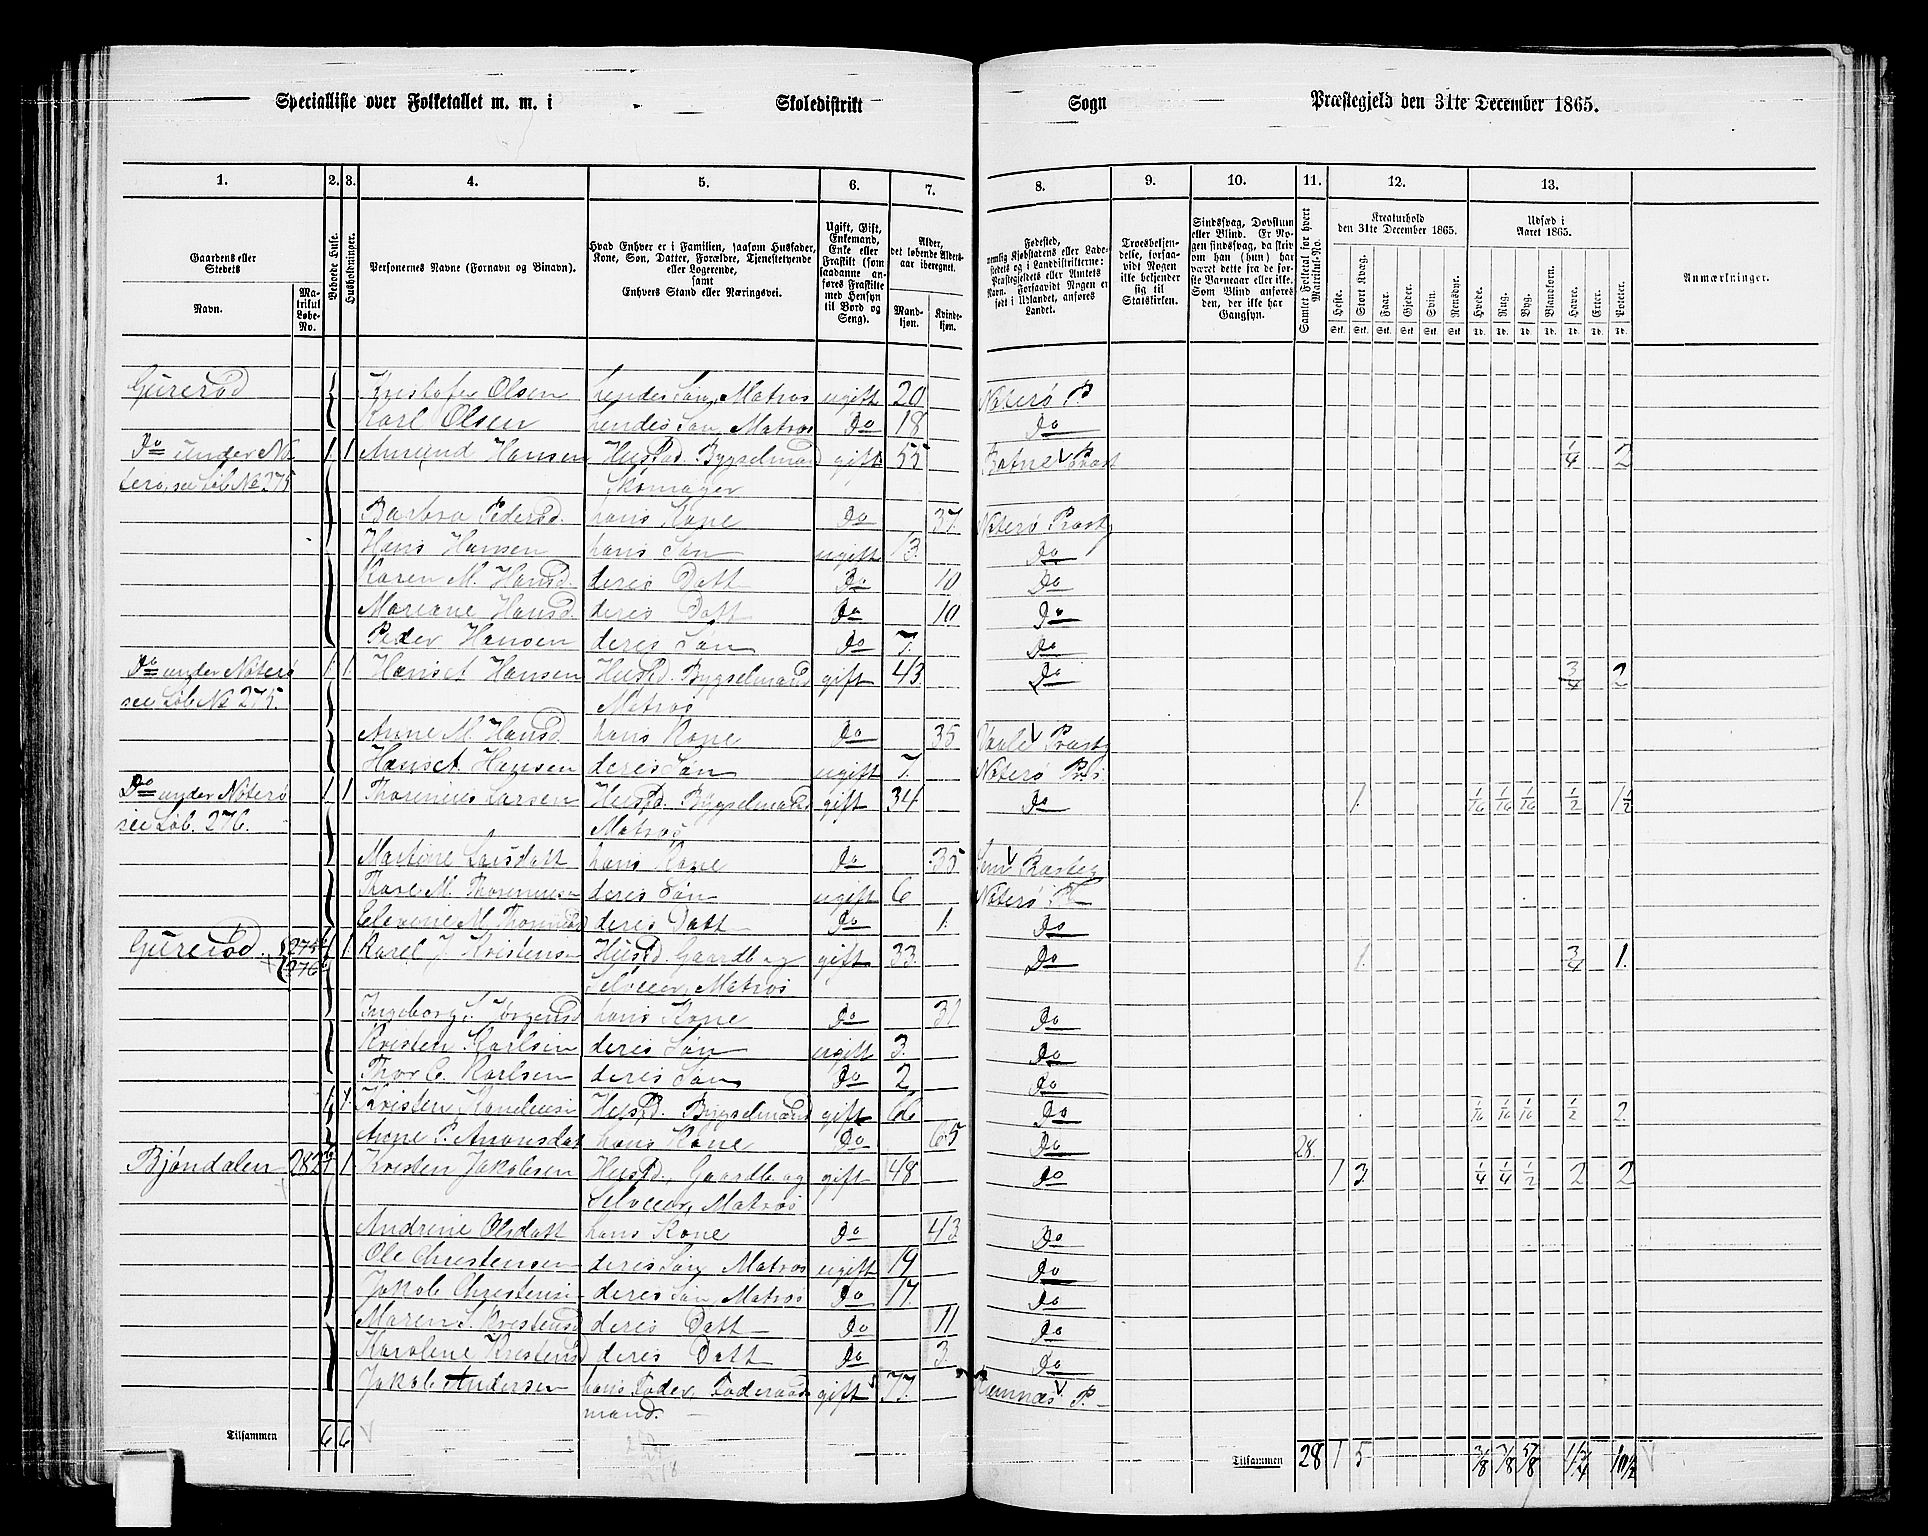 Specialliste over Folketallet m. m. i Skoledistrikt Sogn Præstegjeld den 31te December 1865.
1. 2. 3. 4. 5. 6. 7. 8. 9. 10. 11. 12. 13.
Gaardens eller Stedets Navn. Matrikul Løbe-No.
Beboede Huse.
Husholdninger.
Personernes Navne (Fornavn og Binavn).
Hvad Enhver er i Familien, saasom Husfader, Kone, Søn, Datter, Forældre, Tjenestetyende eller Logerende, samt Enhvers Stand eller Næringsvei.
Ugift, Gift, Enkemand, Enke eller Fraskilt (som saadanne anføres Fraskilte med Hensyn til Bord og Seng).
Alder, det løbende Aldersaar iberegnet. Mandkjøn. Kvindekjøn.
Anmærkninger.
Kreaturhold den 31te December 1865.
Heste. Stort Kvæg. Faar. Gjeder. Svin. Rensdyr.
Udsæd i Aaret 1865.
Hvede. Rug. Byg. Blandkorn. Havre. Erter. Poteter.
Gurerød Kristofer Olsen hendes Søn, Matros ugift 20 Nøterø P
Karl Olsen hendes Søn, Matros Do 18 Do
Do under Nø 1 1 Amund Hansen Husfd. Bygselmand gift 55 Botne Præst 1/4 2
terø, see Løb No 275 Skomager
Barbra Pedersd. hans Kone Do 37 Nøterø Præstg
Hans Hansen hans Søn ugift 13. Do
Karen M. Hansd. deres Datt Do 10 Do
Mariane Hansd. deres Datt Do 10 Do
Peder Hansen deres Søn Do 7. Do
Do under Nøterø 1 1 Hans Hansen Husfd. Bygselmand gift 43 Do 3/4 2
see Løb No 275. Matros
Anne M Hansd. hans Kone Do 35 Vaale Præstg
Hans Hansen deres Søn ugift 7. Nøterø Præ.
Do under Nøterø 1 1 Thorenius Larsen Husfd. Bygselmand gift 34 Do 1. 1/16 1/16 1/16 1/2 1 1/2
see Løb. 276. Matros
Martine Larsdatt hans Kone Do 35 Sem Præsteg
Thore M. Thorenius deres Søn ugift 6 Nøterø P
M. deres Datt Do 1. Do
Gurerød. 275 276 1 1 Karel J. Kristens Husfd. Gaardb og gift 33. Do 1. 3/4 1.
Selveier, Matros
Ingeborg S. Jørgensd hans Kone Do 31 Do
Kristen Karlsen deres Søn ugift 3. Do
Thor C. Karlsen deres Søn Do 2 Do
1 1 Kristen Husfd. Bygselmand gift 66 Do 1/16 1/16 1/16 1/2 2.
Anne P. hans Kone Do 65 Do 28.
Bjøndalen 282 1 1 Kristen Jakobsen Husfd., Gaardb. og gift 48 Do 1 3. 1/4 1/4 1/2 2 2
Selveier, Matros
Andrine Olsdatt hans Kone Do 43 Do
Ole Christensen deres Søn Matros ugift 19 Do
Jakob Christens deres Søn, Matros Do 17. Do
Maren S. Kristensd deres Datt Do 11 Do
Karoline Kristensd deres Datt Do 3. Do
Jakob Andersen hans Fader, Føderaads gift 77. Ramnæs P.
mand.
Tilsammen 6 6
Tilsammen 28 1 5. 3/8 3/8 5/8 4 3/4 10 1/2